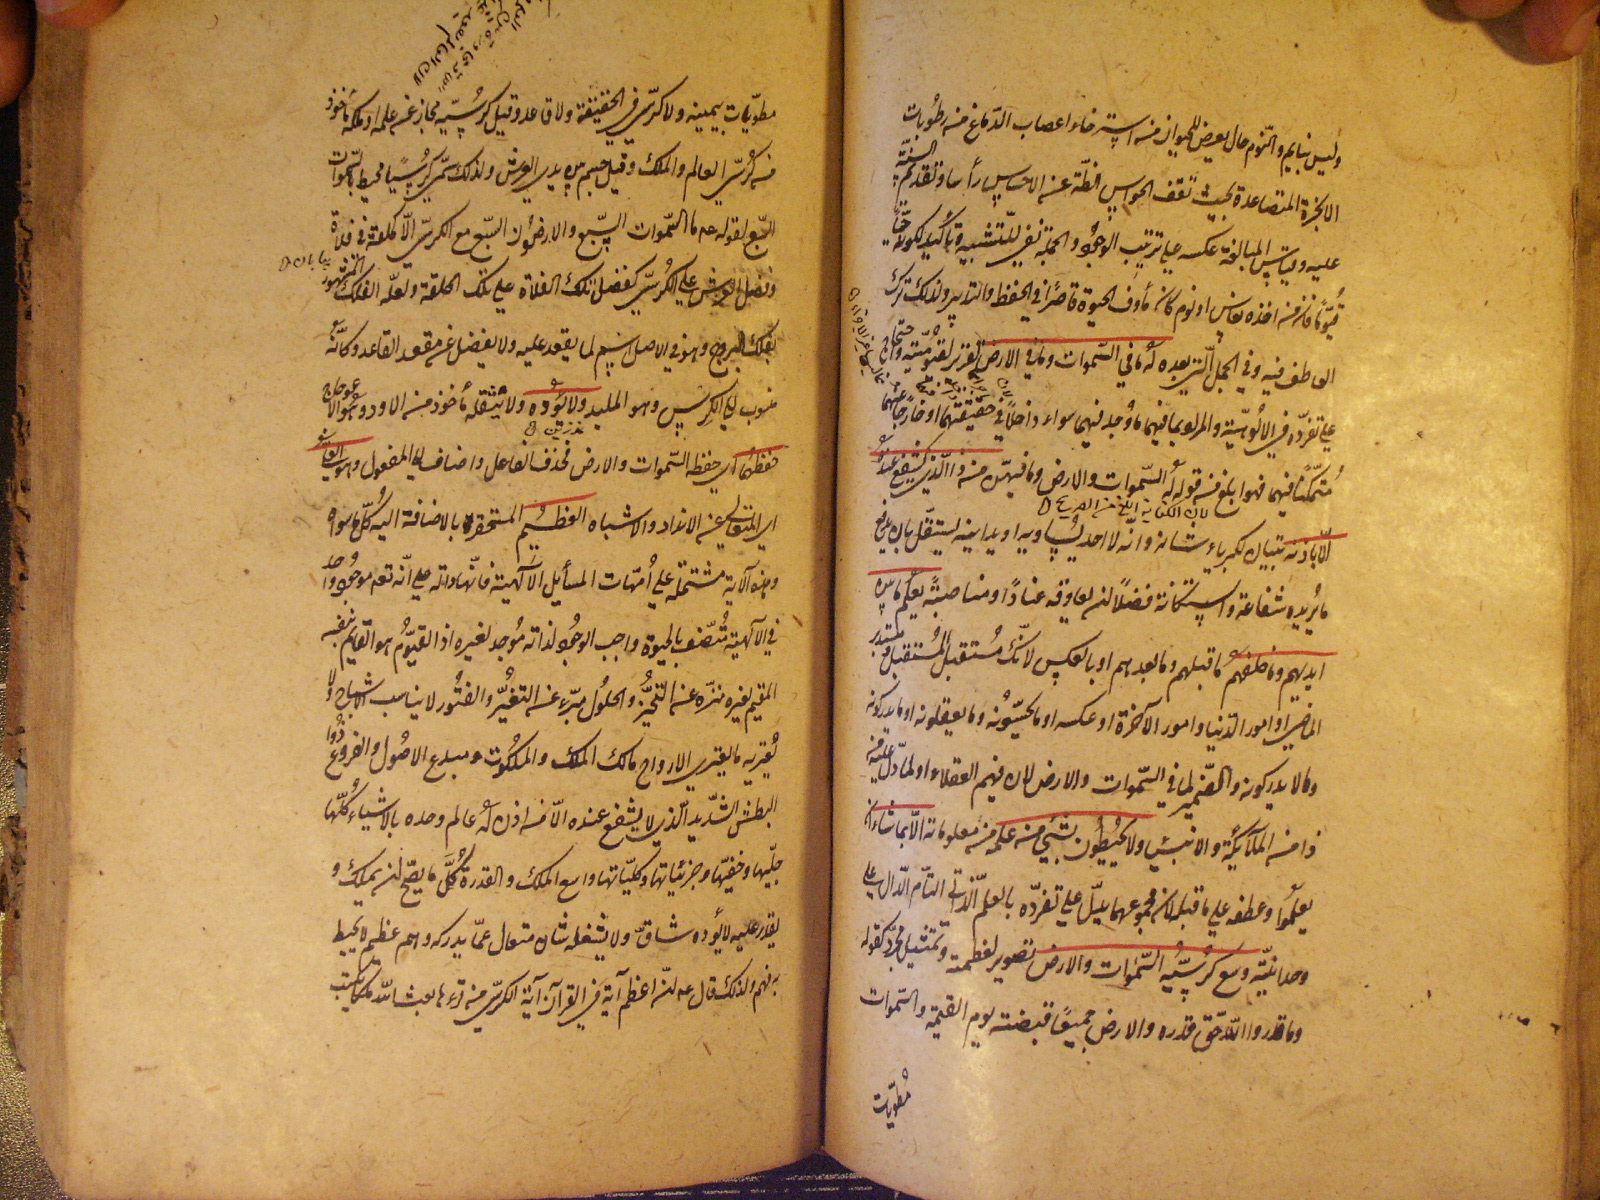 وليس بنايم والنوم حال يعرض للحيوان من استرخاء اعصاب الدماغ من رطوبات
الابخرة المتصاعدة بحيث تقف الحواس الظاهرة عن الاحساس رأسا وتقديم السنة
عليه وقياس المبالغة عكسه على ترتيب الوجود والجملة نفي للتشبيه وتأكيد لكونه حيا
قيوما فان من اخذه نعاس او نوم كان مأوف الحيوة قاصرا في الحفظ والتدبير ولذلك ترك
العاطف فيه وفي الجمل التي بعده له ما في السموات وما في الارض تقرير لقيوميته واحتجاج
على تفرده في الالوهية والمراد بما فيهما ما وجد فيهما سواء داخلا في حقيقتهما او خارجا عنهما
متمكنا فيهما فهو ابلغ من قوله له السموات والارض وما فيهن من ذا الذي يشفع عنده
لان الكناية ابلغ من الصريح
الا باذنه بيان لكبرياء شانه وانه لا احد يساويه او يدانيه يستقل بان يدفع
ما يريده شفاعة واستكانة فضلا ان يعاوقه عنادا او مناصبة يعلم ما بين
ايديهم وما خلفهم ما قبلهم وما بعدهم او بالعكس لانك مستقبل المستقبل ومستدبر
الماضي او امور الدنيا وامور الآخرة او عكسه او ما يحسونه وما يعقلونه او ما يدركونه
وما لا يدركونه والضمير لما في السموات والارض لان فيهم العقلاء او لما دل عليه من
ذا من الملائكة والانبياء ولا يحيطون بشئ من علمه من معلوماته الا بما شاء ان
يعلموا وعطفه على ما قبله لان مجموعهما يدل على تفرده بالعلم الذاتي التام الدال على
وحدانيته وسع كرسيه السموات والارض تصوير لعظمته وتمثيل مجرد كقوله
وما قدروا الله حق قدره والارض جميعا قبضته يوم القيمة والسموات
مطويات
مطويات بيمينه ولا كرسي في الحقيقة ولا قاعد وقيل كرسيه مجاز عن علمه او ملكه مأخوذ
من كرسي العالم والملك وقيل جسم بين يدي العرش ولذلك سمي كرسيا محيط بالسموات
السبع لقوله عم ما السموات السبع والارضون السبع مع الكرسي الا كحلقة في فلاة
بيابان
وفضل العرش على الكرسي كفضل تلك الفلاة على تلك الحلقة ولعله الفلك المشهور
بفلك البروج وهو في الاصل اسم لما يقعد عليه ولا يفضل عن مقعد القاعد وكأنه
منسوب الى الكرس وهو الملبد ولا يؤده ولا يثقله مأخوذ من الاود وهو الاعوجاج
حفظهما اي حفظ السموات والارض فحذف الفاعل واضاف الى المفعول وهو العلي
اي المتعالي عن الانداد والاشباه العظيم المستحقر بالاضافة اليه كل ما سواه
وهذه الآية مشتملة على امهات المسائل الالهية فانها دالة على انه تعم موجود واحد
في الالهية متصف بالحيوة واجب الوجود لذاته موجد لغيره اذ القيوم هو القائم بنفسه
المقيم لغيره منزه عن التحيز والحلول مبرء عن التغير والفتور لا يناسب الاشباح ولا
يعتريه ما يعتري الارواح مالك الملك والملكوت ومبدع الاصول والفروع ذوا
البطش الشديد الذي لا يشفع عنده الا من اذن له عالم وحده بالاشياء كلها
جليها وخفيها وجزئياتها وكلياتها واسع الملك والقدرة كل ما يصح ان يملك و
يقدر عليه لا يؤده شاق ولا يشغله شان متعال عما يدركه وهم عظيم لا يحيط
به فهم ولذلك قال عم ان اعظم آية في القرآن آية الكرسي من قرءها بعث الله ملكا يكتب